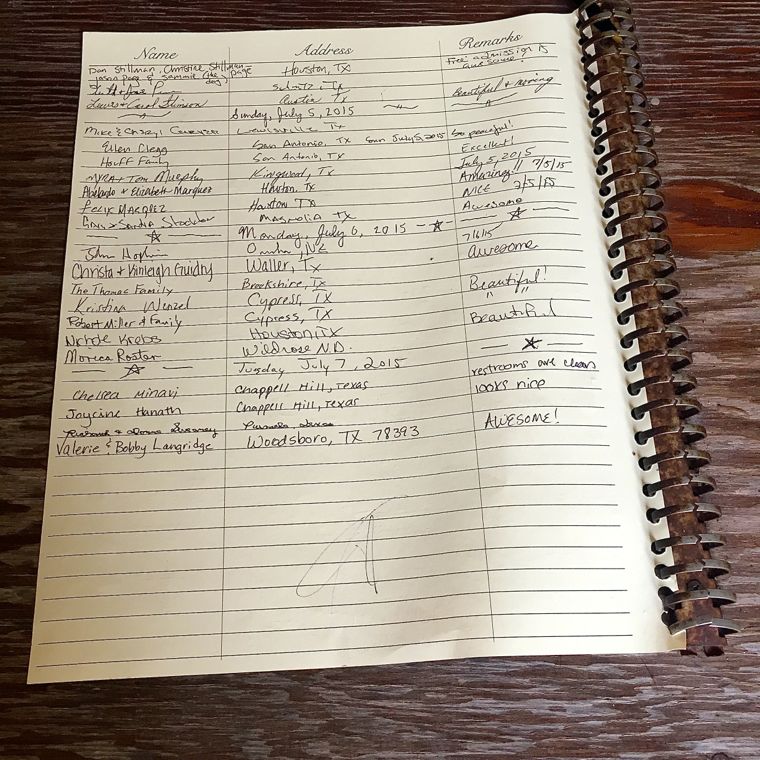 Name Address Remarks
Dan Stillman, Christine Stillman Houston, TX Free admission is
Jason Page & Sammie (the dog) Page awesome!
TX
Lewis & Carol Austin TX Beautiful & moving
Sunday, July 5, 2015
Mike & Lewisville TX
Ellen Clegg San Antonio, TX Sun July 5, 2015 So peaceful!
Houff Family San Antonio, TX Excellent!
Myra + Tom Murphy Kingwood, TX July 5, 2015
Abelardo & Elizabeth Marquez Houston, TX Amazing!! 7/5/15
Felix Marquez Houston TX NICE 7/5/15
& Sandra Magnolia TX Awesome
Monday, July 6, 2015
John Omaha, NE 7/6/15
Christa & Kinleigh Guidry Waller, Tx awesome
The Thomas Family Brookshire, TX
Kristina Wenzel Cypress, TX Beautiful!
Robert Miller & Family Cypress, TX " "
Nichole Krebs Houston, TX Beautiful
Monica Wildrose N.D.
Tuesday July 7, 2015
Chelsea Minavi Chappell Hill, Texas restrooms are clean
Jaycine Hanath Chappell Hill, Texas looks nice
Richard & Donna
Valerie & Bobby Langridge Woodsboro, TX 78393 AWESOME!